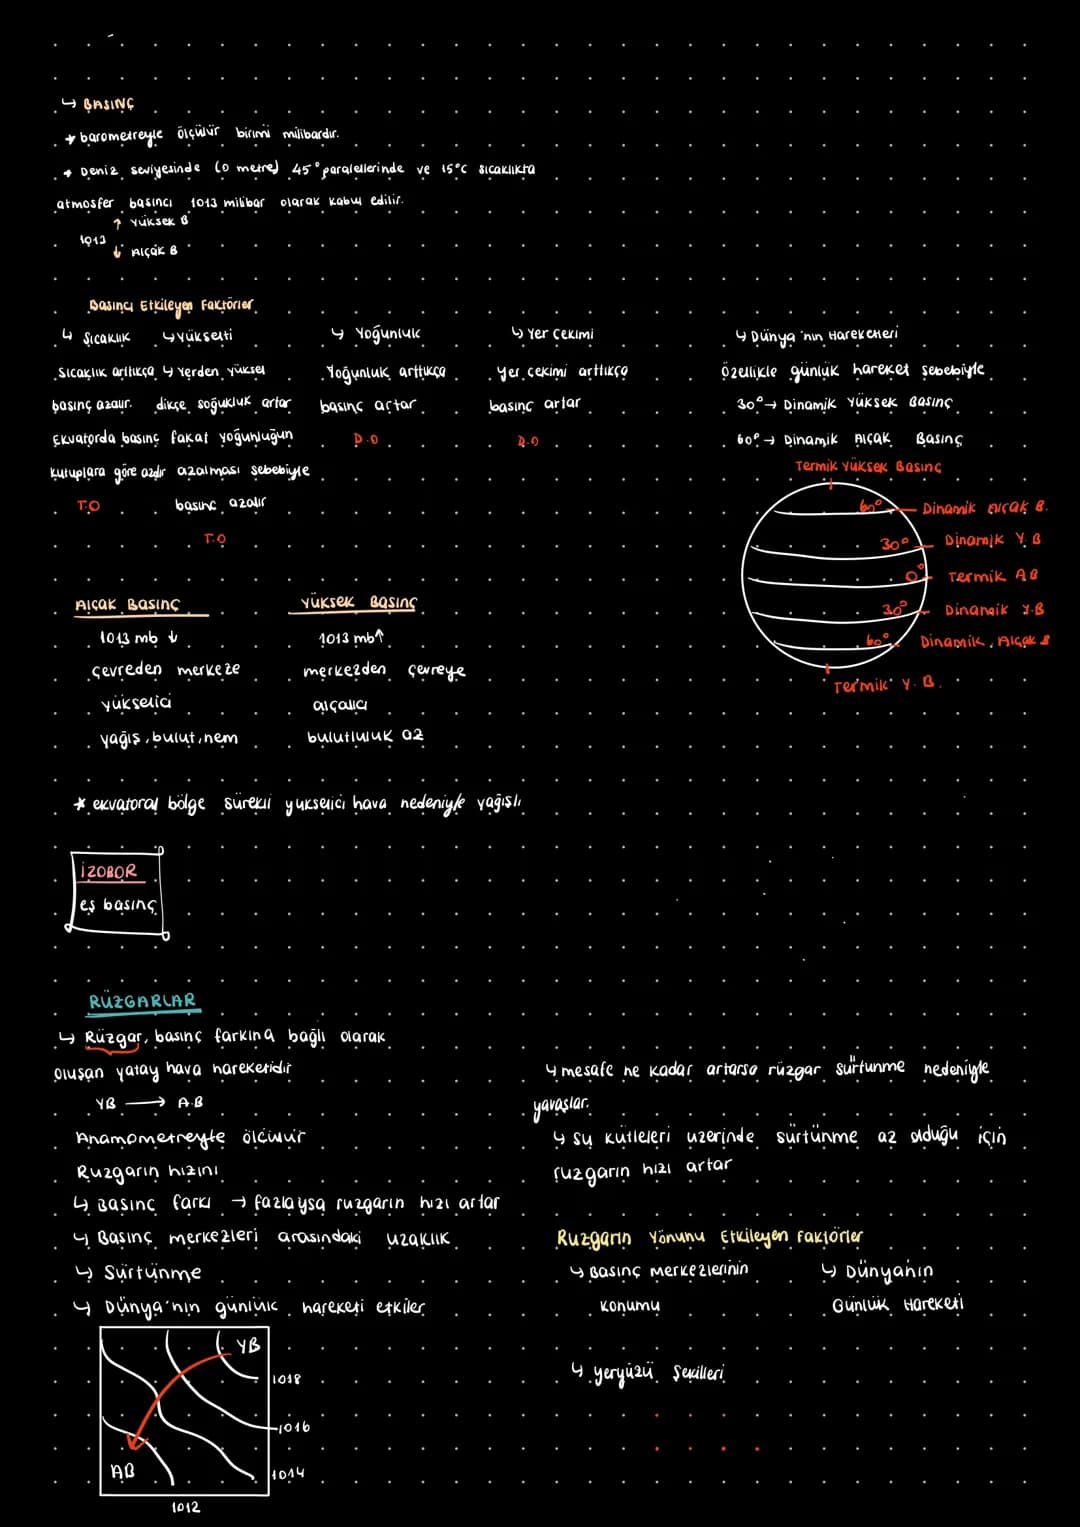 ↳ BASINÇ
* barometreyle ölçülür birimi milibardır.
* Deniz seviyesinde (0 metre) 45° paralellerinde ve 15°C sıcaklıkta
atmosfer basıncı 1013 milibar olarak kabul edilir.
↑ Yüksek B
1013
↓ Alçak B
Basıncı Etkileyen Faktörler
↳ Sıcaklık
Sıcaklık arttıkça
basınç azalır.
Ekvatorda basınç
kutuplara göre azdır
T.O
↳ Yükselti
↳ Yerden yüksel
dikçe soğukluk artar
fakat yoğunluğun
azalması sebebiyle
basınç azalır
T.O
↳ Yoğunluk
Yoğunluk arttıkça
basınç artar
D.O
↳ Yer Çekimi
Yer çekimi arttıkça
basınç artar
D.O
↳ Dünya'nın Hareketleri
Özellikle günlük hareket sebebiyle
30° → Dinamik Yüksek Basınç
60° → Dinamik Alçak Basınç
Termik Yüksek Basınç
60° Dinamik Alçak B.
30° Dinamik Y.B
0° Termik AB
30° Dinamik Y.B
60° Dinamik Alçak B
Termik Y.B.
Alçak Basınç
1013 mb ↓
çevreden merkeze
yükselici
yağış, bulut, nem
Yüksek Basınç
1013 mb↑
merkezden çevreye
alçalıcı
bulutluluk az
* ekvatoral bölge sürekli yükselici hava nedeniyle yağışlı
İZOBOR
eş basınç
RÜZGARLAR
↳ Rüzgar, basınç farkına bağlı olarak
oluşan yatay hava hareketidir
YB → A.B
Anamometreyle ölçülür
Ruzgarın hızını
↳ Basınç farkı → fazlaysa ruzgarın hızı artar
↳ Basınç merkezleri arasındaki uzaklık
↳ Sürtünme
↳ Dünya'nın günlük hareketi etkiler
YB
1018
1016
AB
1014
1012
↳ mesafe ne kadar artarsa rüzgar sürtunme nedeniyle
yavaşlar.
↳ su kütleleri uzerinde sürtünme az olduğu için
ruzgarın hızı artar
Ruzgarın Yönunu Etkileyen Faktörler
↳ Basınç merkezlerinin
konumu
↳ Dünyanın
Günlük Hareketi
↳ yeryüzü Şekilleri